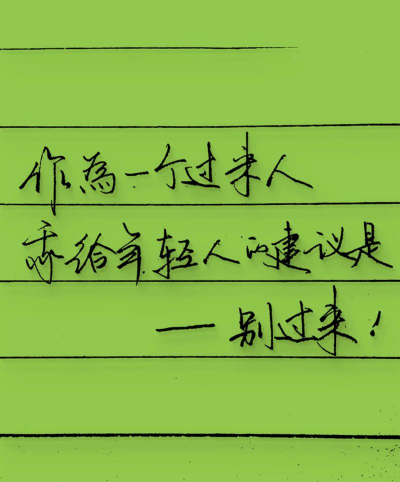 作為一个过来人
我给年轻人的建议是
——别过来！